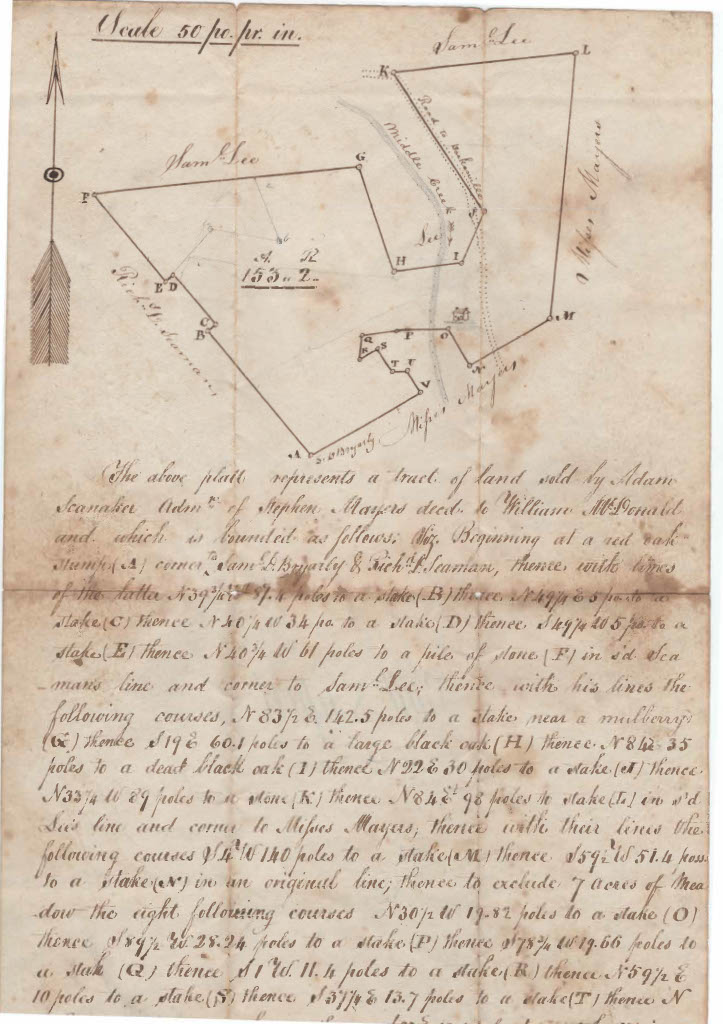 Scale 50 po. pr. in.
Saml. Lee
K
L
Road to
Middle Creek
Misses Mayers
Saml. Lee
G
F
J
Lee
H
I
A. R
153 " 2.
E D
Richd. L. Seaman
C
B
M
Q
P
O
R
S
T
U
N
V
Misses Mayers
A
S. D. Bryarly
The above platt represents a tract of land sold by Adam
Seanaker Admr. of Stephen Mayers decd. to William McDonald
and which is bounded as follows; Viz. Beginning at a red oak
stump (A) corner to Saml. D. Bryarly & Richd. L. Seaman, thence with lines
of the latter poles to a stake (B) thence N 49 1/4 E 5 po. to a
stake (C) thence N 40 1/4 W 34 po. to a stake (D) thence S 49 1/4 W 5 po. to a
stake (E) thence N 40 3/4 W 61 poles to a pile of stone (F) in sd. Sea
-man's line and corner to Saml. Lee; thence with his lines the
following courses, N 83 1/2 E. 142.5 poles to a stake near a mulberry
(G) thence S 19 E 60.1 poles to a large black oak (H) thence N 84 E 35
poles to a dead black oak (I) thence N 22 E 30 poles to a stake (J) thence
N 33 1/4 W 89 poles to a stone (K) thence N 84 E 98 poles to stake (L) in s'd
Lee's line and corner to Misses Mayers; thence with their lines the
following courses S 4 W 140 poles to a stake (M) thence S 59 1/2 W 51.4 poles
to a stake (N) in an original line; thence to exclude 7 acres of Mea
dow the eight following courses N 30 1/2 W 19.82 poles to a stake (O)
thence S 89 1/2 W. 28.24 poles to a stake (P) thence S 78 3/4 W 19.66 poles to
a stake (Q) thence S 1 W. 11.4 poles to a stake (R) thence N 59 1/2 E
10 poles to a stake (S) thence S 37 1/4 E 13.7 poles to a stake (T) thence N